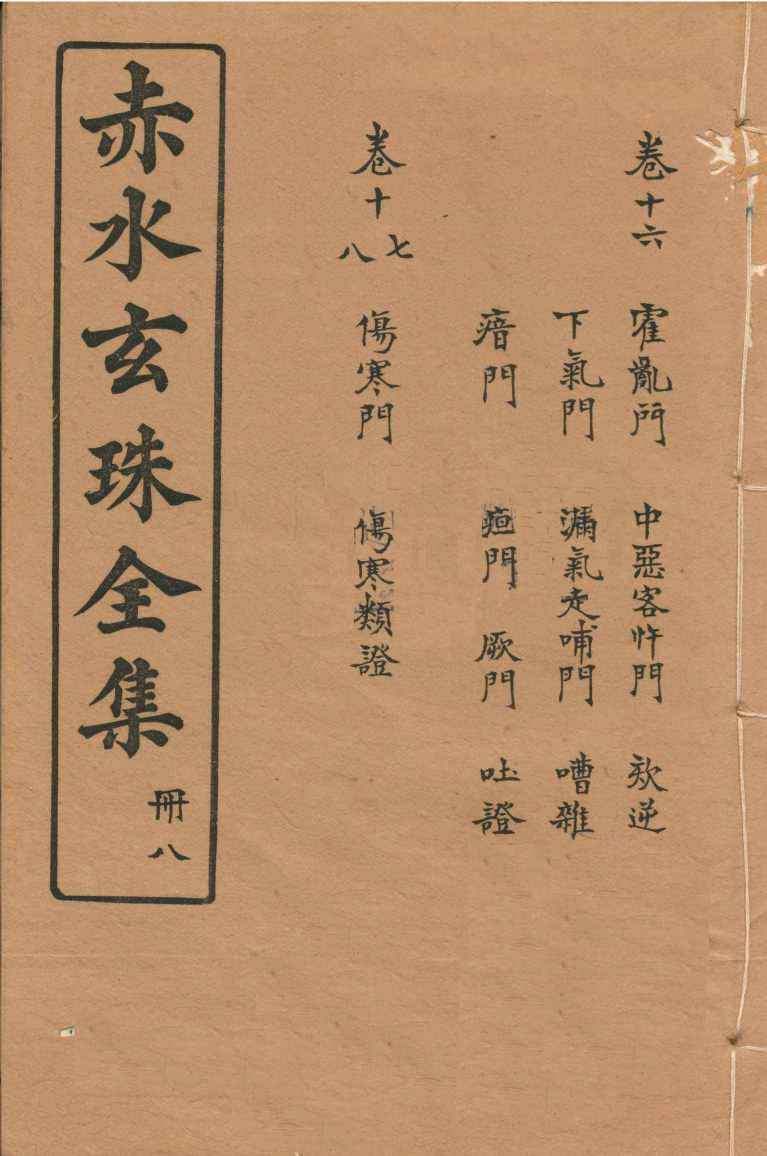 卷十六 霍亂門 中惡客忤門 欬逆
下氣門 漏氣走哺門 嘈雜
瘖門 疸門 厥門 吐證
卷十七八 傷寒門 傷寒類證
赤水玄珠全集 冊八